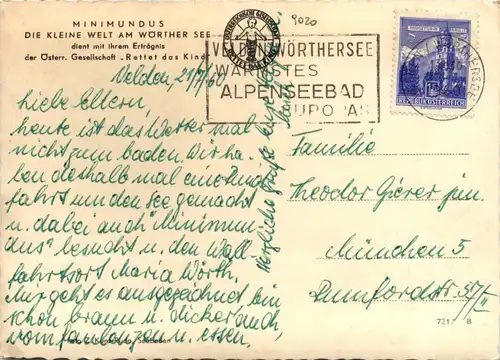 MINIMUNDUS
DIE KLEINE WELT AM WÖRTHER SEE
dient mit ihrem Erträgnis
der Österr. Gesellschaft „Rettet das Kind"
9020
VELDEN WÖRTHERSEE
WÄRMSTES
ALPENSEEBAD
EUROPAS
REPUBLIK ÖSTERREICH
Velden, 21/7/60
Liebe Eltern,
heute ist das Wetter mal
nicht zum baden. Wir ha-
ben deshalb mal eine Rund
fahrt um den See gemacht
u. dabei auch "Minimun
dus" besucht u. den Wall
fahrtsort Maria Wörth.
Mir geht es ausgezeichnet bin
schon braun u. dicker auch
vom faulenzen u. essen,
Herzliche Grüße
Familie
Theodor Gierer jun.
München 5
Rumfordstr. 57/II
731 B